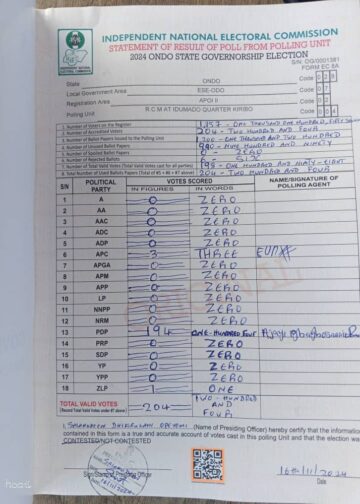 INDEPENDENT NATIONAL ELECTORAL COMMISSION
STATEMENT OF RESULT OF POLL FROM POLLING UNIT
2024 ONDO STATE GOVERNORSHIP ELECTION
S/N: OG/0001381
FORM EC 8A
State ONDO Code
Local Government Area ESE-ODO Code
Registration Area APOI II Code
Polling Unit R.C.M AT IDUMADO QUARTER KIRIBO Code
1. Number of Voters on the Register 1,157 - ONE THOUSAND ONE HUNDRED, FIFTY
2. Number of Accredited Voters 204 - TWO HUNDRED AND FOUR
3. Number of Ballot Papers Issued to the Polling Unit ONE THOUSAND TWO HUNDRED
4. Number of Unused Ballot Papers HUNDRED AND NINETY
5. Number of Spoiled Ballot Papers 0 - ZERO
6. Number of Rejected Ballots SIX
7. Number of Total Valid Votes (Total Valid Votes cast for all parties) 198 - ONE HUNDRED AND NINTY-EIGHT
8. Total Number of Used Ballot Papers (Total of #5 + #6 + #7 above) 204 - TWO HUNDRED AND FOUR
S/N POLITICAL PARTY VOTES SCORED NAME/SIGNATURE OF POLLING AGENT
IN FIGURES IN WORDS
1 A 0 ZERO
2 AA 0 ZERO
3 AAC 0 ZERO
4 ADC 0 ZERO
5 ADP 0 ZERO
6 APC 3 THREE
7 APGA 0 ZERO
8 APM 0 ZERO
9 APP 0 ZERO
10 LP 0 ZERO
11 NNPP 0 ZERO
12 NRM 0 ZERO
13 PDP 194 ONE-HUNDRED FOUR
14 PRP 0 ZERO
15 SDP 0 ZERO
16 YP 0 ZERO
17 YPP 0 ZERO
18 ZLP 1 ONE
TOTAL VALID VOTES 204 TWO-HUNDRED AND FOUR
(Record Total Valid Votes under #7 above)
(Name of Presiding Officer) hereby certify that the information
contained in this form is a true and accurate account of votes cast in this polling Unit and that the election was
CONTESTED/NOT CONTESTED
Officer
16/11/2024
Date